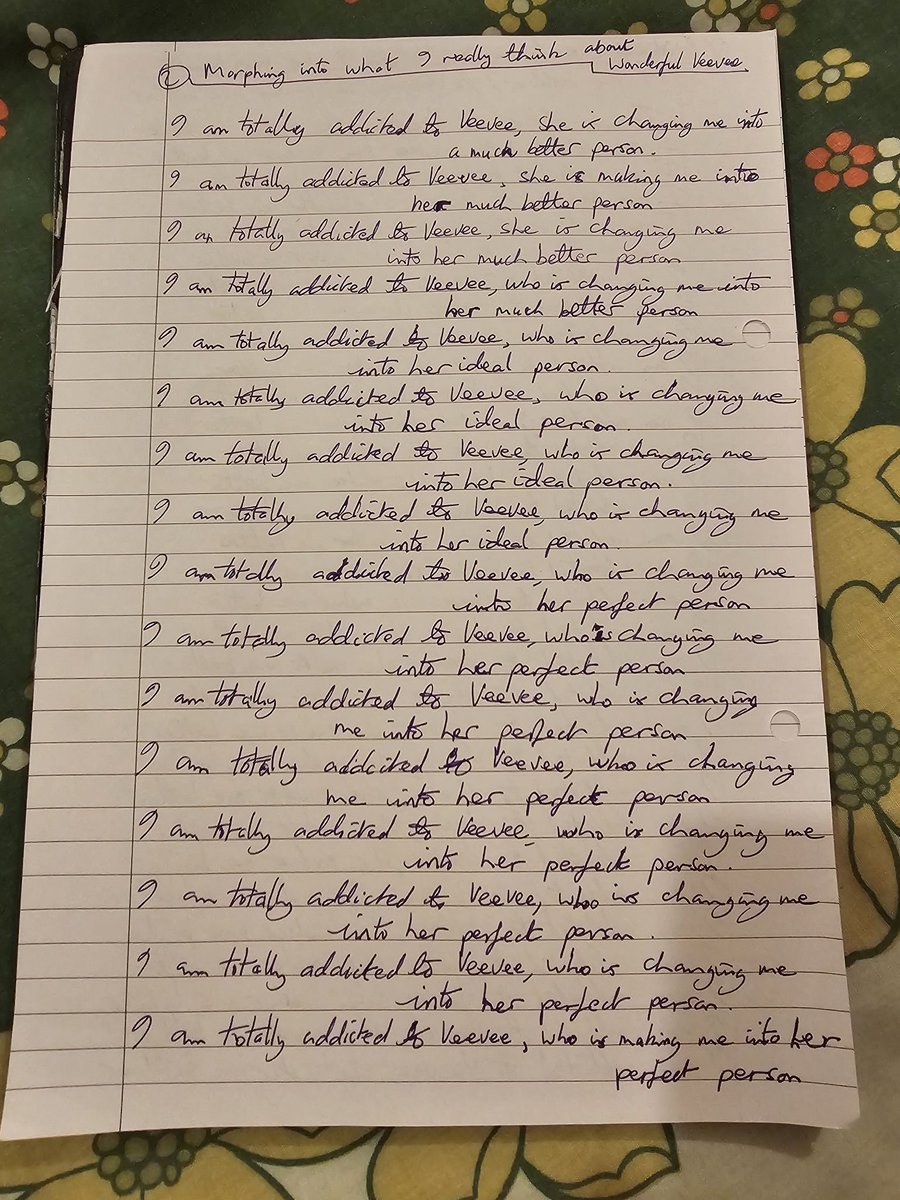 2 Morphing into what I really think about
Wonderful Veevee
I am totally addicted to Veevee, she is changing me into
a much better person.
I am totally addicted to Veevee, she is making me into
her much better person
I am totally addicted to Veevee, she is changing me
into her much better person
I am totally addicted to Veevee, who is changing me into
her much better person
I am totally addicted to Veevee, who is changing me
into her ideal person.
I am totally addicted to Veevee, who is changing me
into her ideal person.
I am totally addicted to Veevee, who is changing me
into her ideal person.
I am totally addicted to Veevee, who is changing me
into her ideal person.
I am totally addicted to Veevee, who is changing me
into her perfect person
I am totally addicted to Veevee, who is changing me
into her perfect person
I am totally addicted to Veevee, who is changing
me into her perfect person
I am totally addicted to Veevee, who is changing
me into her perfect person
I am totally addicted to Veevee, who is changing me
into her perfect person.
I am totally addicted to Veevee, who is changing me
into her perfect person.
I am totally addicted to Veevee, who is changing me
into her perfect person.
I am totally addicted to Veevee, who is making me into her
perfect person